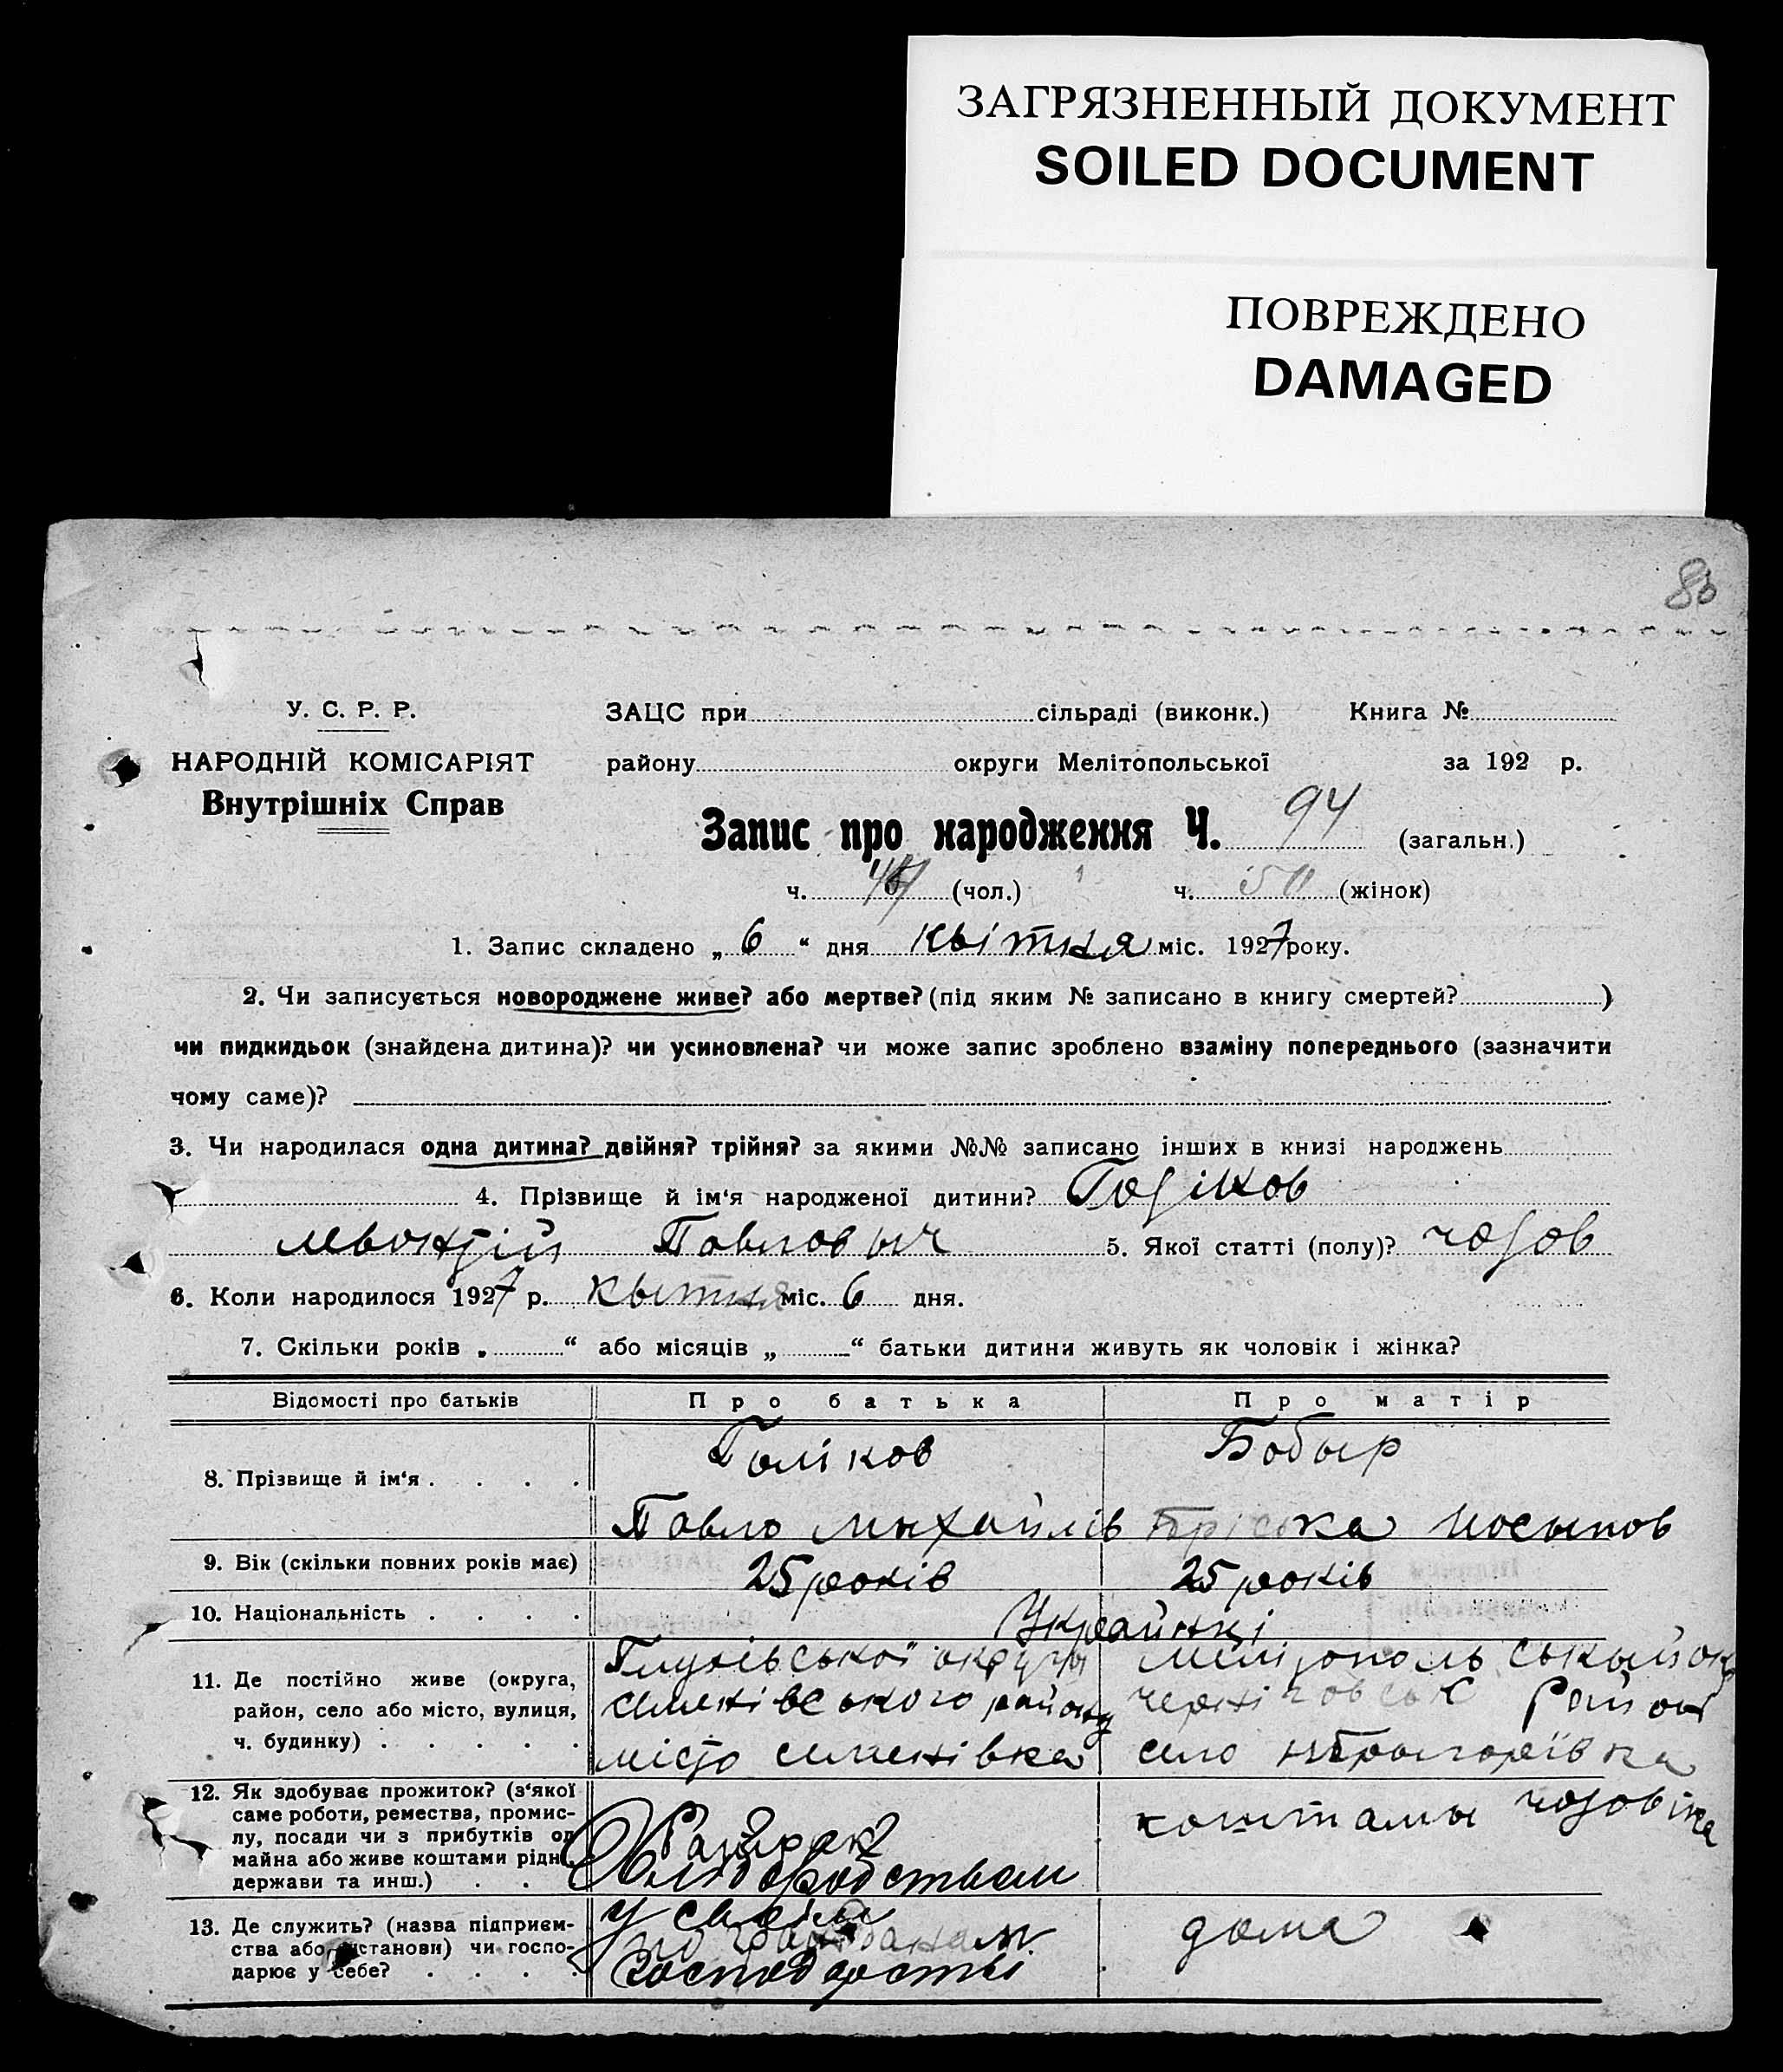 ЗАГРЯЗНЕННЫЙ ДОКУМЕНТ
SOILED DOCUMENT
ПОВРЕЖДЕНО
DAMAGED
У. С. Р. Р.
ЗАЦС при сільраді (виконк.) Книга №
НАРОДНІЙ КОМІСАРІЯТ
району округи Мелітопольської за 192 р.
Внутрішніх Справ
Запис про народження Ч. 94 (загальн.)
ч. (чол.) ч. 50 (жінок)
1. Запис складено „ 6 “ дня квітня міс. 1927 року.
2. Чи записується новороджене живе? або мертве? (під яким № записано в книгу смертей? )
чи пидкидьок (знайдена дитина)? чи усиновлена? чи може запис зроблено взаміну попереднього (зазначити
чому саме)?
3. Чи народилася одна дитина? двійня? трійня? за якими №№ записано інших в книзі народжень
4. Прізвище й ім‘я народженої дитини? Голіков
Павлович 5. Якої статті (полу)? чолов
6. Коли народилося 1927 р. квытня міс. 6 дня.
7. Скільки років „ “ або місяців „ “ батьки дитини живуть як чоловік і жінка?
Відомості про батьків Про батька Про матір
8. Прізвище й ім‘я Голіков Бобыр
Павло Мыхайлів Йосыпов
9. Вік (скільки повних років має) 25 років 25 років
10. Національність Українці
11. Де постійно живе (округа,
район, село або місто, вулиця,
ч. будинку)
Глухівської округы
семенівського району
місто семенівка
район
село
12. Як здобуває прожиток? (з‘якої
саме роботи, ремества, промис-
лу, посади чи з прибутків од
майна або живе коштами рідн
держави та инш.)
коштамы чоловіка
13. Де служить? (назва підприєм-
ства або установи) чи госпо-
дарює у себе?
у своем
дома